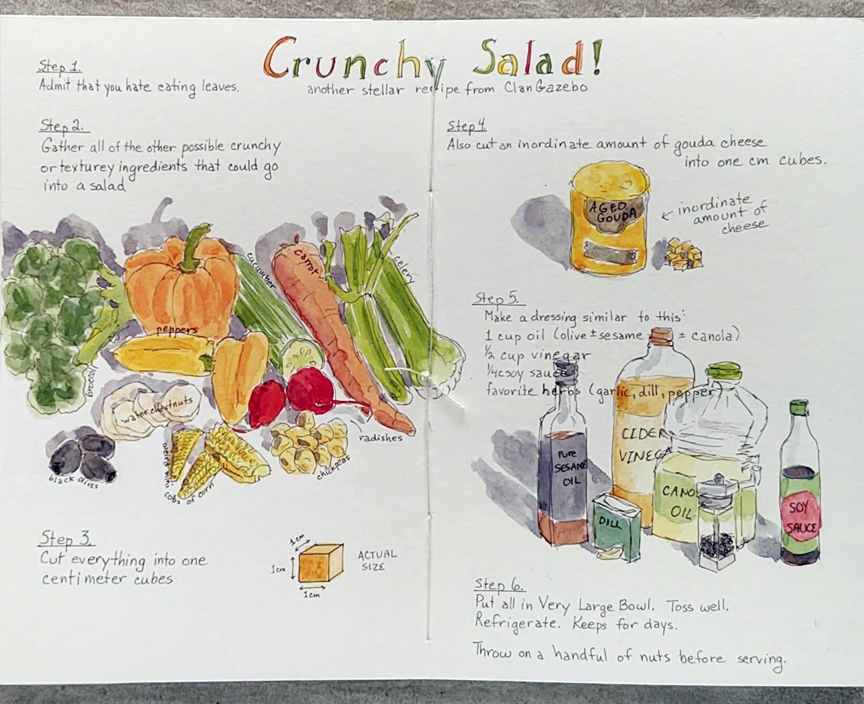 Crunchy Salad!
another stellar recipe from Clan Gazebo
Step 1.
Admit that you hate eating leaves.
Step 2.
Gather all of the other possible crunchy
or texturey ingredients that could go
into a salad
broccoli
peppers
cucumber
carrot
celery
water chestnuts
radishes
black olives
cobs of corn
chickpeas
Step 3.
Cut everything into one
centimeter cubes
1cm
1cm
1cm
ACTUAL
SIZE
Step 4.
Also cut an inordinate amount of gouda cheese
into one cm cubes.
AGED
GOUDA
← inordinate
amount of
cheese
Step 5.
Make a dressing similar to this:
1 cup oil (olive ± sesame ± canola)
½ cup vinegar
¼c soy sauce
favorite herbs (garlic, dill, pepper)
PURE
SESAME
OIL
CIDER
VINEGA
DILL
CANO
OIL
SOY
SAUCE
Step 6.
Put all in Very Large Bowl. Toss well.
Refrigerate. Keeps for days.
Throw on a handful of nuts before serving.